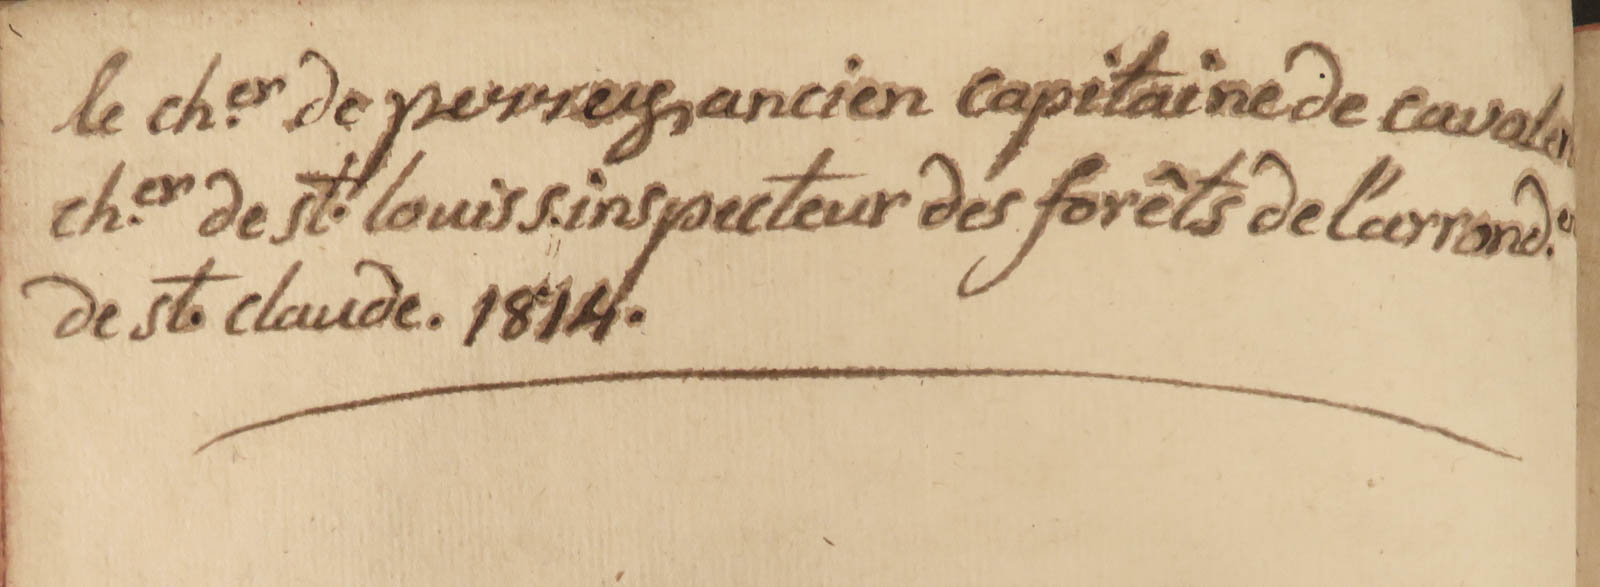 le ch.er de perrey, ancien capitaine de cavaler
ch.er de st. louis s.inspecteur des forêts de l'arrond.
de st. claude. 1814.